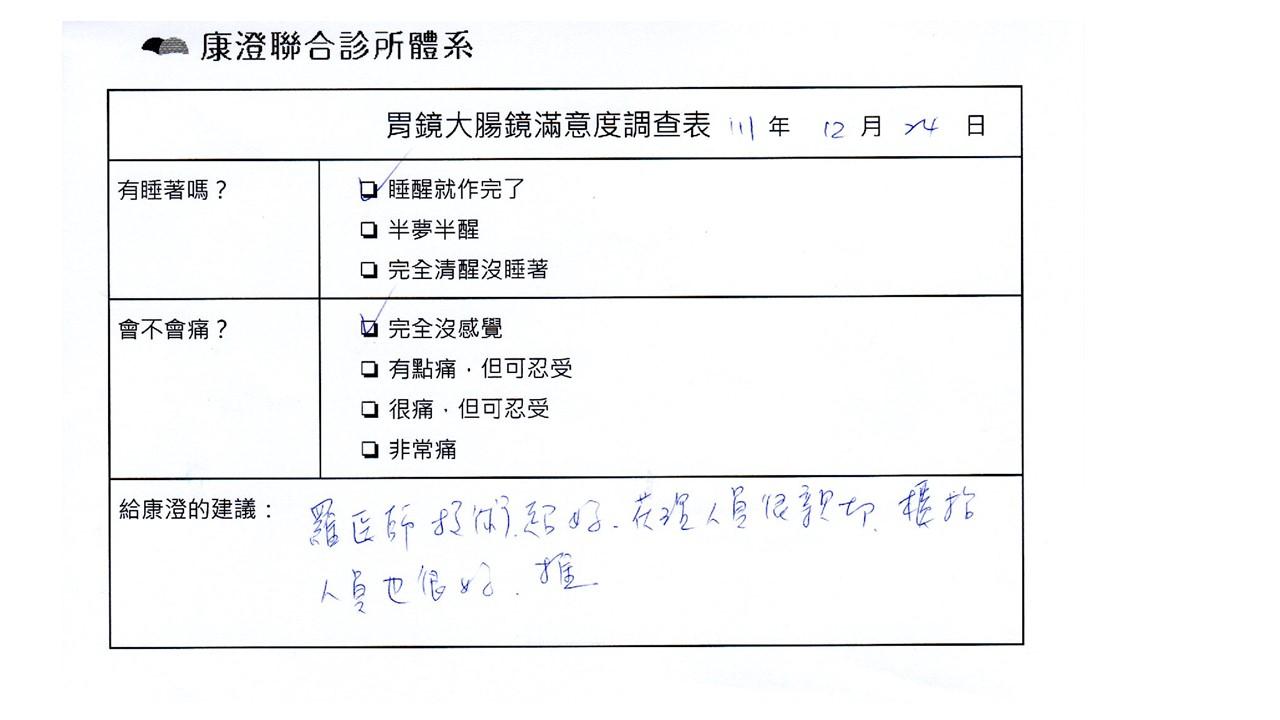 康澄聯合診所體系
胃鏡大腸鏡滿意度調查表 111年 12月 24日
有睡著嗎？
睡醒就作完了
半夢半醒
完全清醒沒睡著
會不會痛？
完全沒感覺
有點痛，但可忍受
很痛，但可忍受
非常痛
給康澄的建議：
羅医師技術超好、護理人員很親切、櫃抬
人員也很好、推